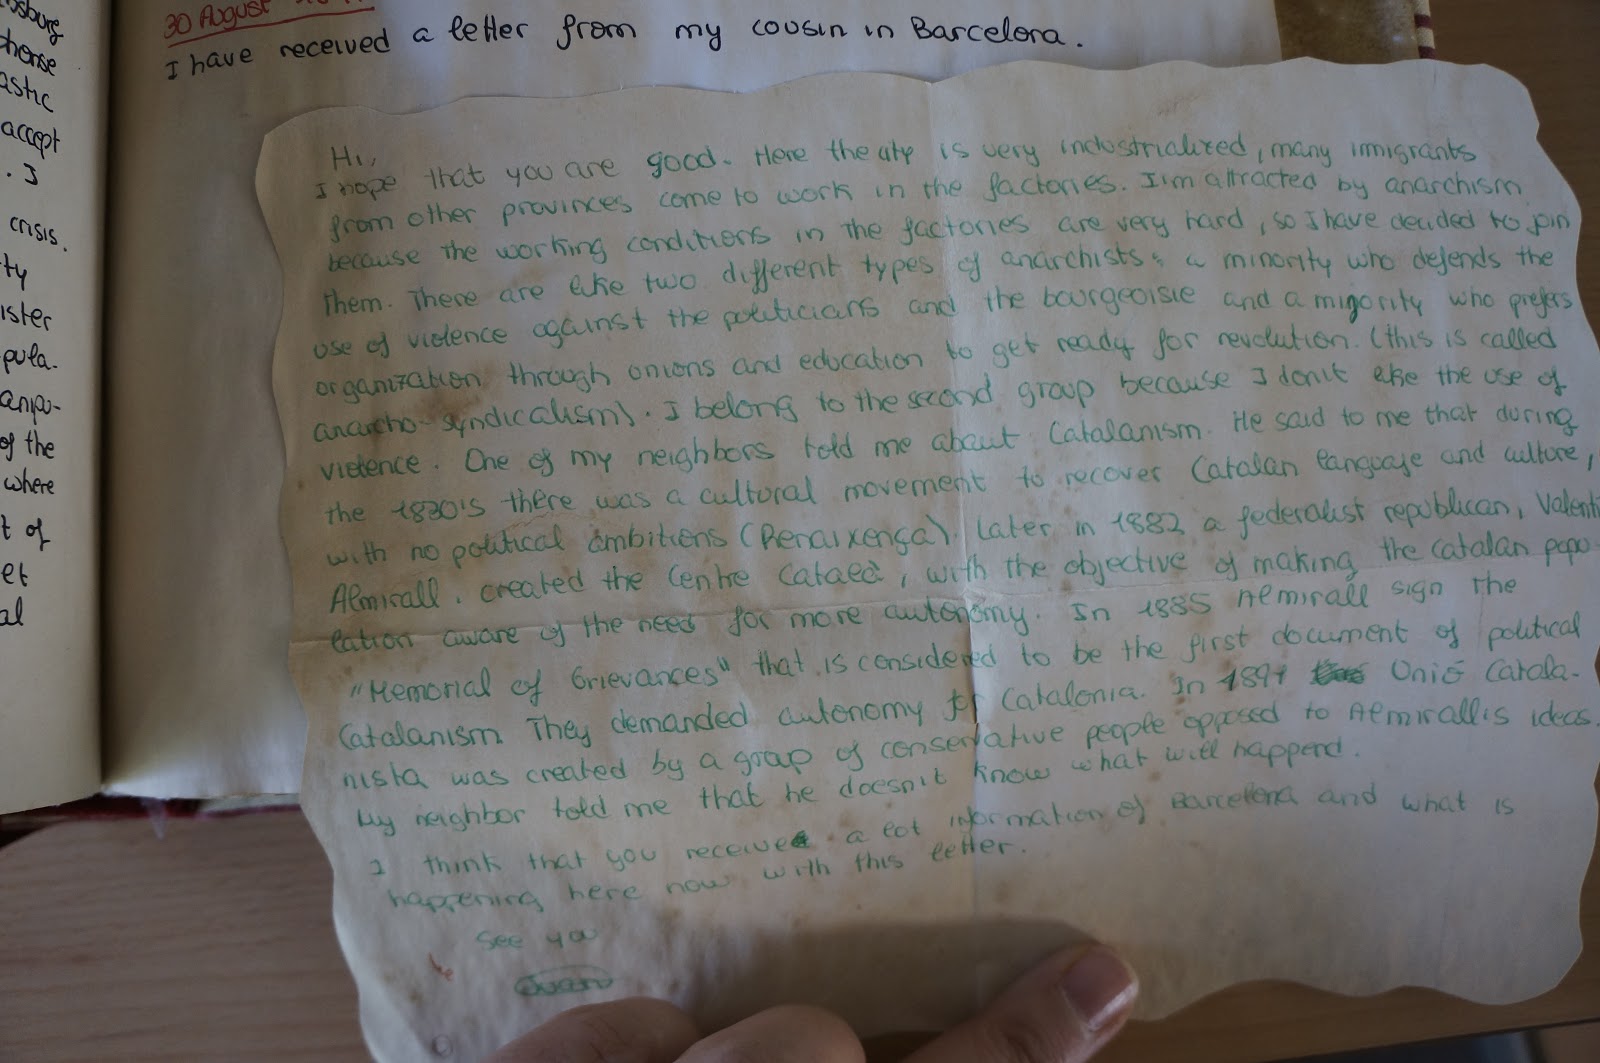 osburg
phonse
astic
accept
. I
crisis.
ty
ister
pula-
anipu-
of the
where
t of
et
al
30 August
I have received a letter from my cousin in Barcelona.
Hi,
I hope that you are good. Here the city is very industrialized, many inmigrants
from other provinces come to work in the factories. I'm attracted by anarchism
because the working conditions in the factories are very hard, so I have decided to join
them. There are like two different types of anarchists: a minority who defends the
use of violence against the politicians and the bourgeoisie and a migority who prefers
organization through unions and education to get ready for revolution. (this is called
anarcho-syndicalism). I belong to the second group because I don't like the use of
violence. One of my neighbors told me about Catalanism. He said to me that during
the 1830's there was a cultural movement to recover Catalan language and culture,
with no political ambitions (Renaixença). Later in 1882 a federalist republican, Valentí
Almirall. created the Centre Català, with the objective of making the catalan popu-
lation aware of the need for more autonomy. In 1885 Almirall sign the
"Memorial of Grievances" that is considered to be the first document of political
Catalanism. They demanded autonomy for Catalonia. In 1891 Unió Catala-
nista was created by a group of conservative people opposed to Almirall's ideas.
My neighbor told me that he doesn't know what will happend.
I think that you receive a lot information of Barcelona and what is
happening here now with this letter.
See you
Juan